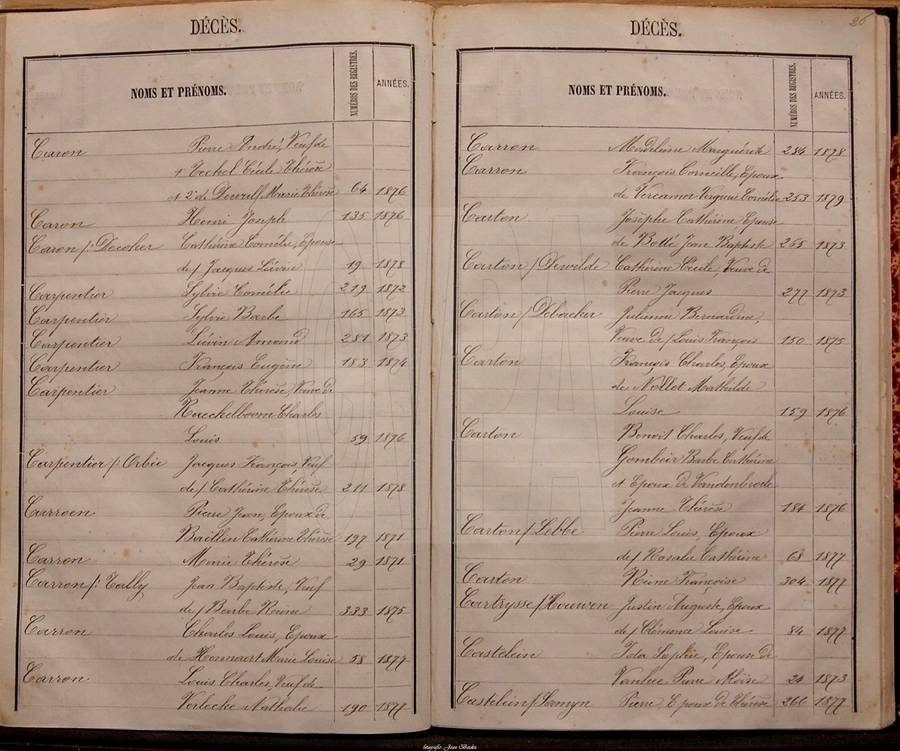 DÉCÈS.
NOMS ET PRÉNOMS.
NUMÉROS DES REGISTRES.
ANNÉES.
Caron Pierre André, Veuf de
1° Cécile Thérèse
et 2° de Marie Thérèse 64 1876
Caron Henri Joseph 135 1876
Caron /: Decoker Cathérine Cornélie, Epouse
de / Jacques Liévin 19 1878
Carpentier Sylvie Cornélie 219 1872
Carpentier Sylvie Barbe 165 1873
Carpentier Liévin Amand 281 1873
Carpentier François Eugène 183 1874
Carpentier Jeanne Thérèse, Veuve de
Raechelboom Charles
Louis 59 1876
Carpentier /: Orbie Jacques François, Veuf
de / Cathérine Thérèse 211 1878
Carroen Pierre Jean, Epoux de
Baillieu Cathérine Thérèse 197 1871
Carron Marie Thérèse 29 1871
Carron /: Tally Jean Baptiste, Veuf
de / Barbe Reine 333 1875
Carron Charles Louis, Epoux
de Hennaert Marie Louise 58 1877
Carron Louis Charles, Veuf de
Verleche Nathalie 190 1877
26
DÉCÈS.
NOMS ET PRÉNOMS.
NUMÉROS DES REGISTRES.
ANNÉES.
Carron Madeleine Marguérite 284 1878
Carron François Corneille, Epoux
de Vercamer Virginie Cornélie 253 1879
Carton Josèphe Cathérine Epouse
de Botté Jean Baptiste 265 1873
Carton / Dewilde Cathérine Cécile, Veuve de
Pierre Jacques 277 1873
Carton / Debacker Julienne Bernardine,
Veuve de / Louis François 150 1875
Carton François Charles, Epoux
de Nollet Mathilde
Louise 159 1876
Carton Benoit Charles, Veuf de
Gombeir Barbe Cathérine
et Epoux de Vandenbroele
Jeanne Thérèse 184 1876
Carton / Lebbe Pierre Louis, Epoux
de / Rosalie Cathérine 68 1877
Carton Reine Françoise 304 1877
Cartrysse / Houwen Justin Auguste, Epoux
de / Clémence Louise 84 1877
Castelein Ida Sophie, Epouse de
Vanhee Pierre Moïse 24 1873
Castelein / Samyn Pierre Epoux de Thérèse 266 1877
fotografie Jean Beedts